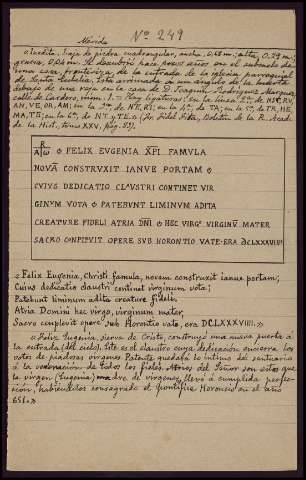 Mérida Nº 249
«Inédita, hoja de piedra cuadrangular, ancha, 0,48 m; alta, 0,29 m;
gruesa, 0,04 m. Se descubrió hace pocos años en el subsuelo de
una casa frontiriza de la entrada de la iglesia parroquial
de Santa Eulalia. Está empotrada en un ángulo de la huerta
debajo de una reja en la casa de D. Joaquín Rodríguez Marquez,
calle de Cardero, núm. 1. = Hay ligaturas: en la línea 2ª de NST, RV,
AN, VE, OR, AM; en la 3ª de NT, RI; en la 4ª de TA; en la 5ª de TR, HE,
MA, TE; en la 6ª de NT y TE.» (Sr. Fidel Fita, Boletín de la R. Acad.
de la Hist., tomo XXV, pág.
FELIX EVGENIA X̅P̅I̅ FAMVLA
NOVĀ CONSTRVXIT IANVE PORTAM
CVIVS DEDICATIO CLAVSTRI CONTINET VIR
GINVM VOTA PATEBVNT LIMINVM ADITA
CREATVRE FIDELI ATRIA D̅N̅I̅ HEC VIRGᵒ VIRGINV̄ MATER
SACRO CONPLEVIT OPERE SVB HORONTIO VATE · ERA DCLXXXVIIIIᵃ
«Felix Eugenia, Christi famula, novam construxit ianue portam;
Cuius dedicatio claustri continet virginum vota;
Patebunt liminum adita creature fideli.
Atria Domini hec virgo, virginum mater,
Sacro conplevit opere sub Horontio vate, era DCLXXXVIIII.»
«Felix Eugenia, sierva de Cristo, construyó una nueva puerta á
la entrada (del cielo). Este es el claustro cuya dedicación encierra los
votos de piadosas vírgenes. Patente quedará lo íntimo del santuario
á la veneración de todos los fieles. Atrios del Señor son estos que
la virgen (Eugenia) madre de vírgenes, llevó á cumplida perfec-
ción, habiéndolos consagrado el Pontífice Horoncio en el año
651.»